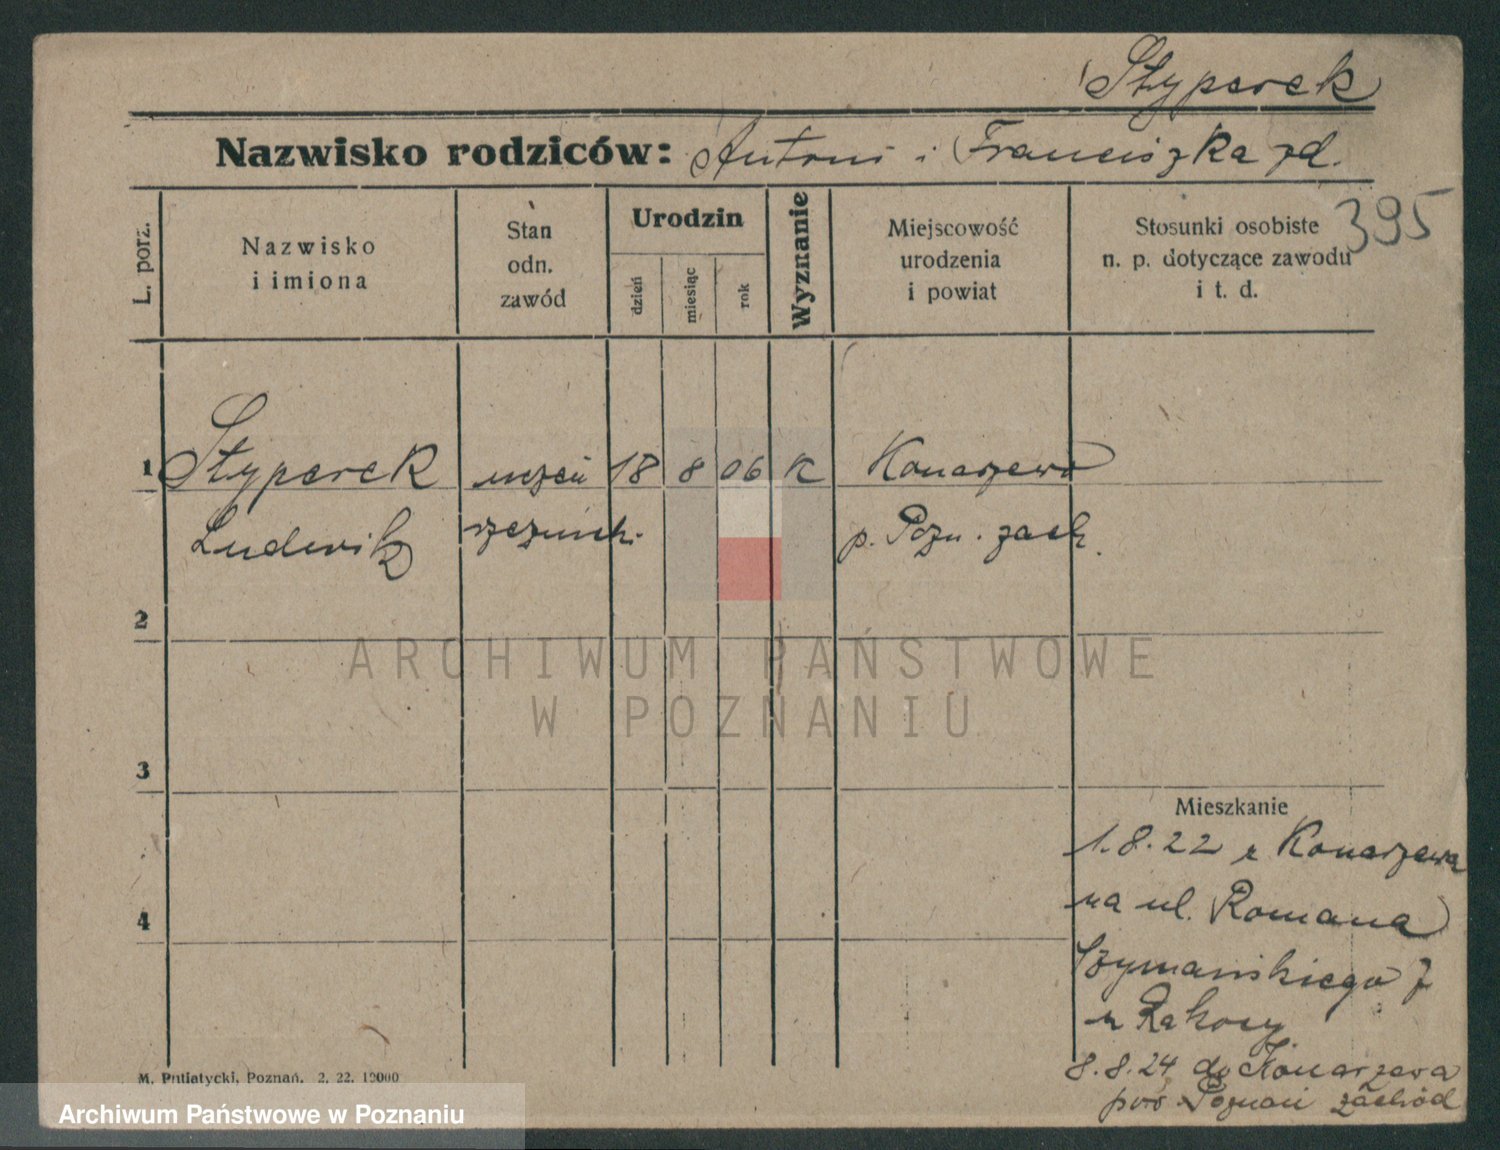 Styperek
Nazwisko rodziców: Antoni i Franciszka zd.
395
L. porz.
Nazwisko
i imiona
Stan
odn.
zawód
Urodzin
dzień
miesiąc
rok
Wyznanie
Miejscowość
urodzenia
i powiat
Stosunki osobiste
n. p. dotyczące zawodu
i t. d.
1 Styperek uczeń 18 8 06 K Konarzewo
Ludwik rzeźnick. p. Pozn. zach.
2
ARCHIWUM PAŃSTWOWE
W POZNANIU
3
Mieszkanie
1.8.22 z Konarzewa
4
na ul. Romana
Szymańskiego 7
8.8.24 do Konarzewa
pow. Poznań zachód
M. Putiatycki, Poznań. 2. 22. 10000
Archiwum Państwowe w Poznaniu